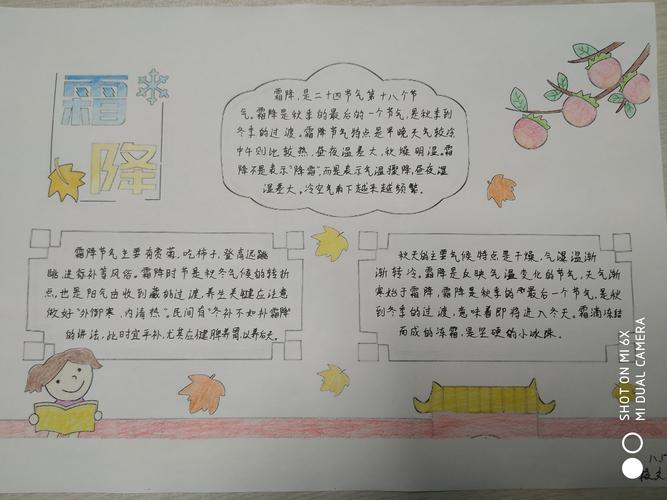 霜
降
霜降,是二十四节气第十八个节
气。霜降是秋季的最后的一个节气,是秋季到
冬季的过渡。霜降节气特点是早晚天气较冷
中午则比较热,昼夜温差大,秋燥明显。霜
降不是表示"降霜",而是表示气温骤降,昼夜温
温差大。冷空气南下越来越频繁。
霜降节气主要有赏菊,吃柿子,登高远眺
眺,进行补等风俗。霜降时节是秋冬气候的转折
点,也是阳气由收到藏的过渡,养生关键应注意
做好"外御寒、内清热"。民间有"冬补不如补霜降"
的讲法,此时宜平补,尤其应健脾养胃,以养后天。
秋天的主要气候特点是干燥,气温温渐
渐转冷。霜降是反映气温变化的节气,天气渐
寒始于霜降,霜降是秋季的最后一个节气,是秋
到冬季的过渡,意味着即将进入冬天。霜滴冻结
而成的冻霜,是坚硬的小冰珠。
SHOT ON MI 6X
MI DUAL CAMERA